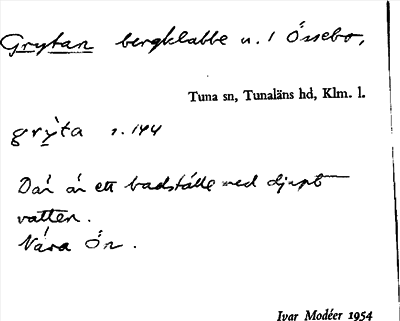 Grytan bergklabbe u. 1 Össebo,
Tuna sn, Tunaläns hd, Klm. l.
grýta s. 144
Där är ett badställe med djupt
vatten.
Nära Ön.
Ivar Modéer 1954